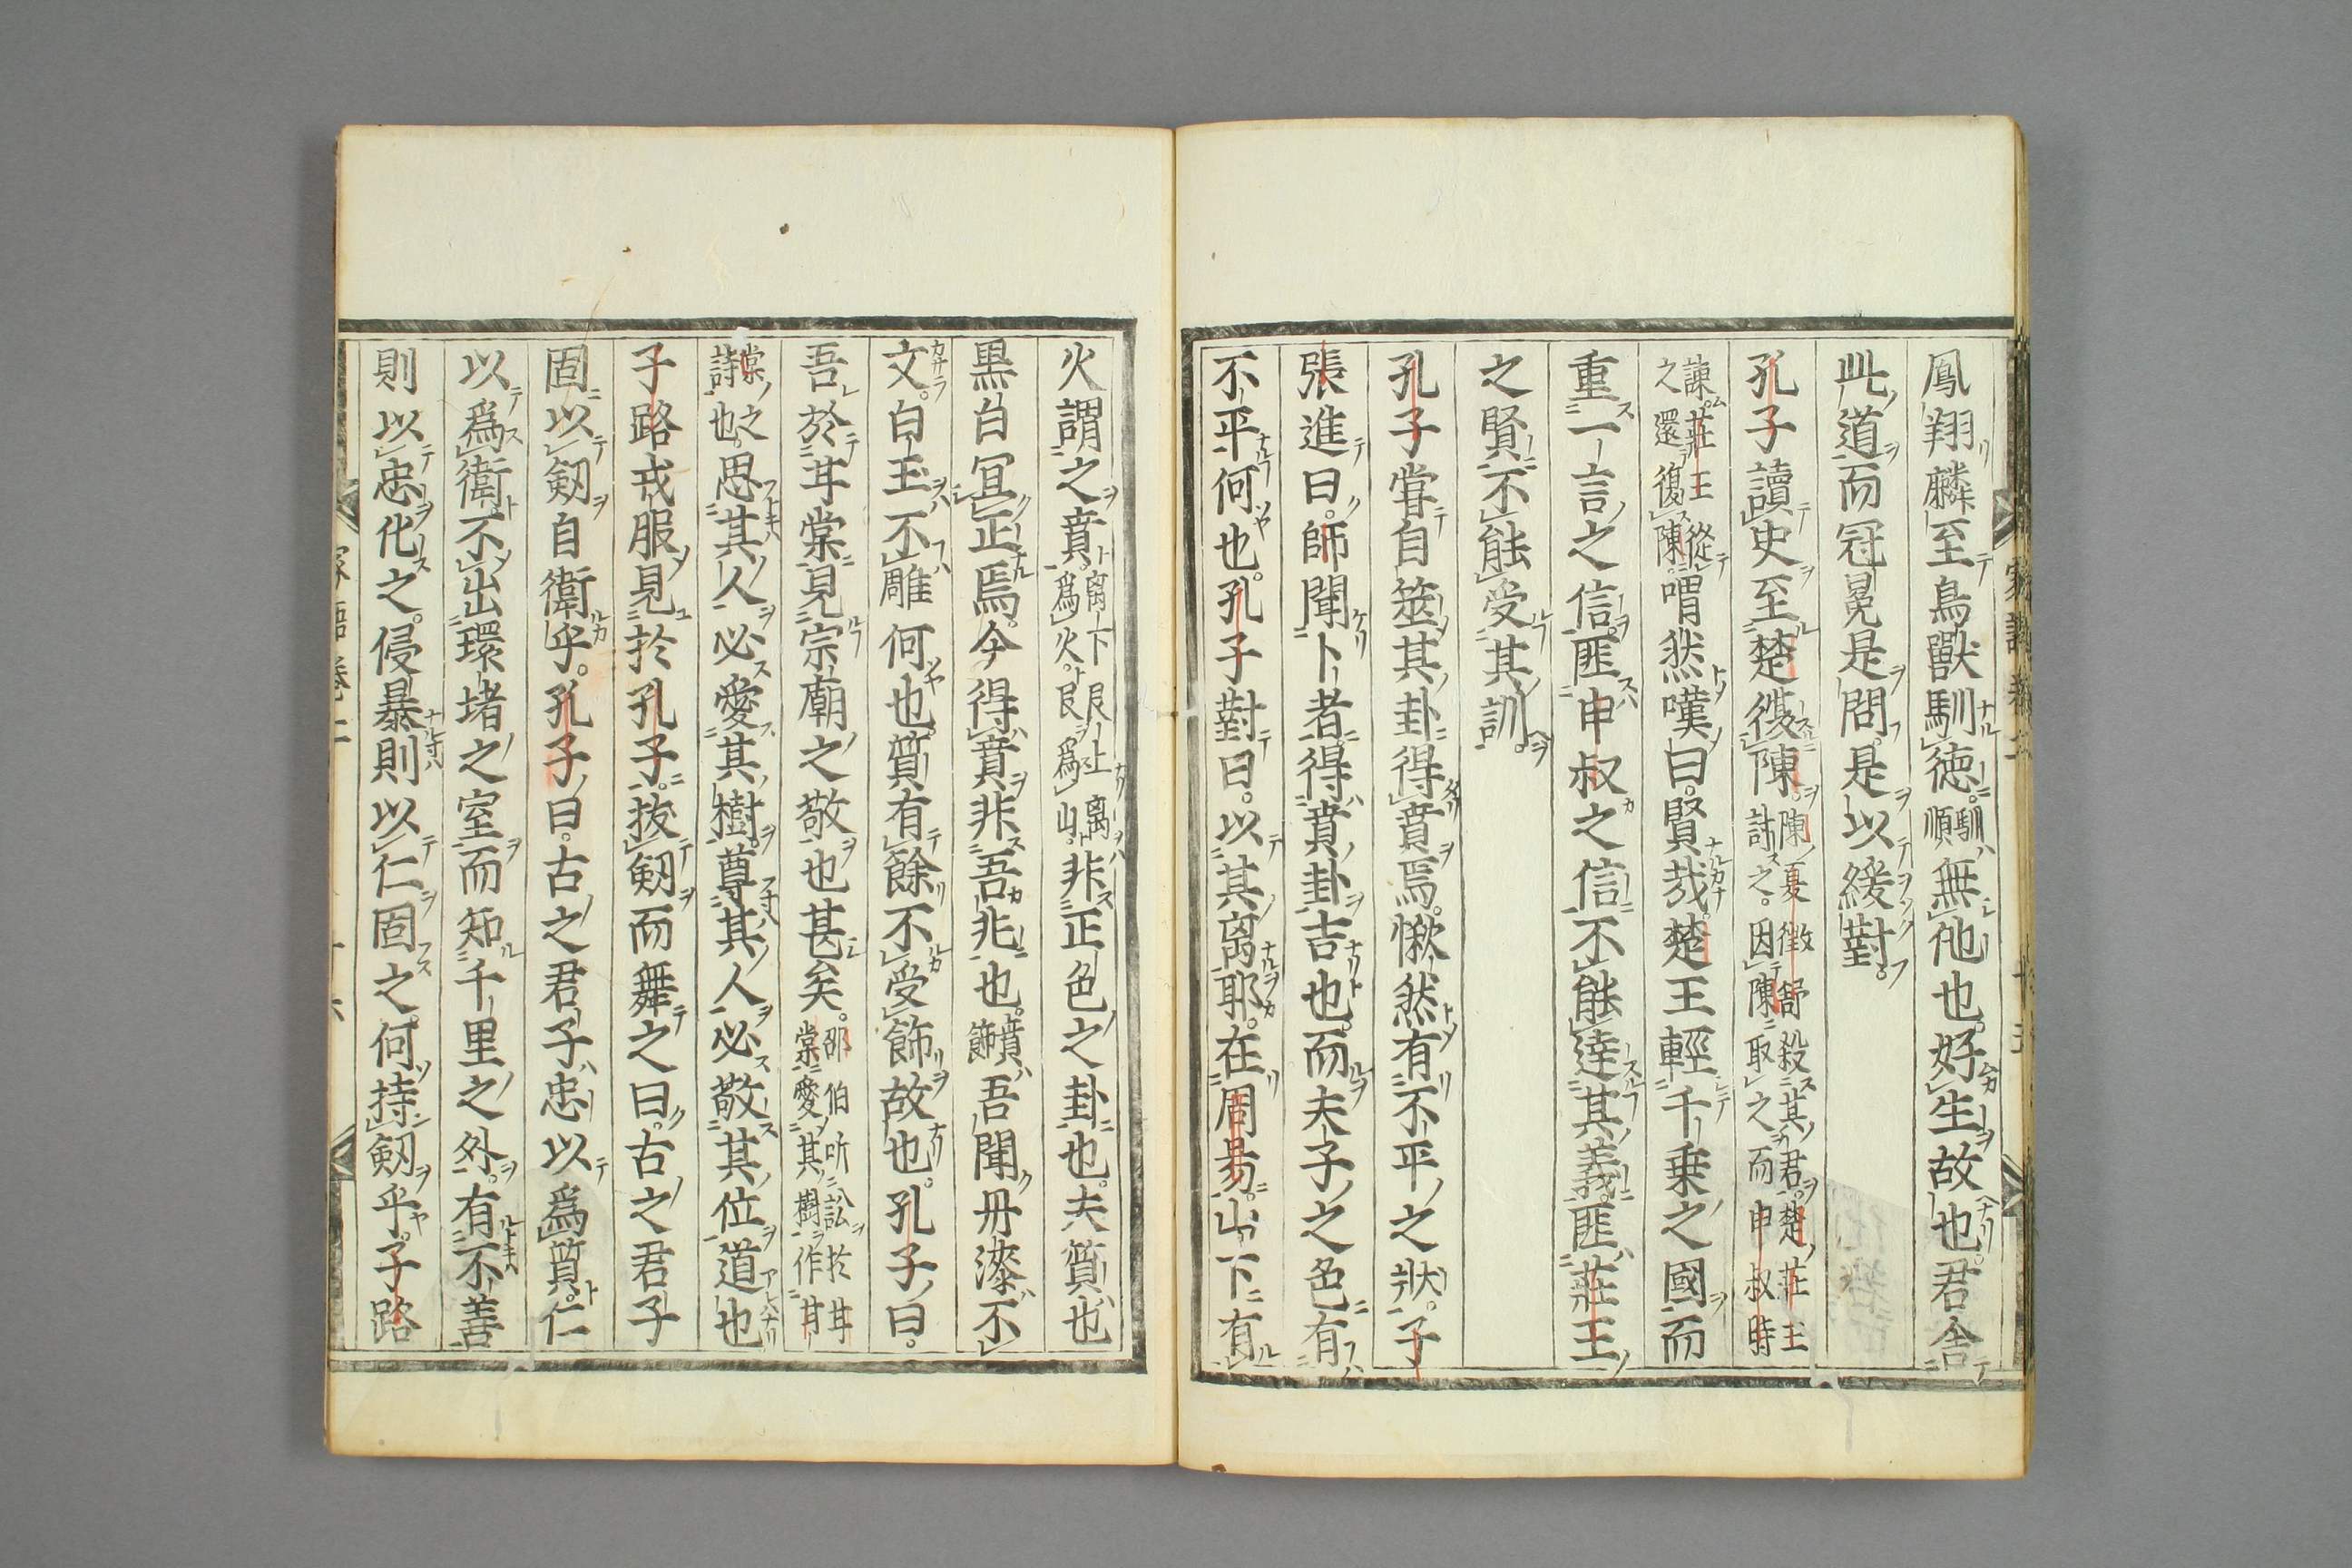 鳳翔麟至鳥獸馴德馴順無他也好生故也君舍
此道而冠冕是問是以緩對
孔子讀史至楚復陳陳夏徵舒殺其君楚莊王討之因陳取之而申叔時
諫莊王從之還復陳喟然嘆曰賢哉楚王輕千乗之國而
重一言之信匪申叔之信不能達其義匪莊王
之賢不能受其訓
孔子甞自筮其卦得賁焉愀然有不平之狀子
張進曰師聞卜者得賁卦吉也而夫子之色有
不平何也孔子對曰以其离耶在周昜山下有
火謂之賁離下艮上離爲火艮爲山非正色之卦也夫質也
黒白宜正焉今得賁非吾兆也賁飾吾聞丹漆不
文白玉不雕何也質有餘不受飾故也孔子曰
吾於甘棠見宗廟之敬也甚矣邵伯听訟於甘棠愛其樹作甘
棠之詩也思其人必愛其樹尊其人必敬其位道也
子路戎服見於孔子拔劔而舞之曰古之君子
固以劔自衛乎孔子曰古之君子忠以爲質仁
以爲衛不出環堵之室而知千里之外有不善
則以忠化之侵暴則以仁固之何持劔乎子路